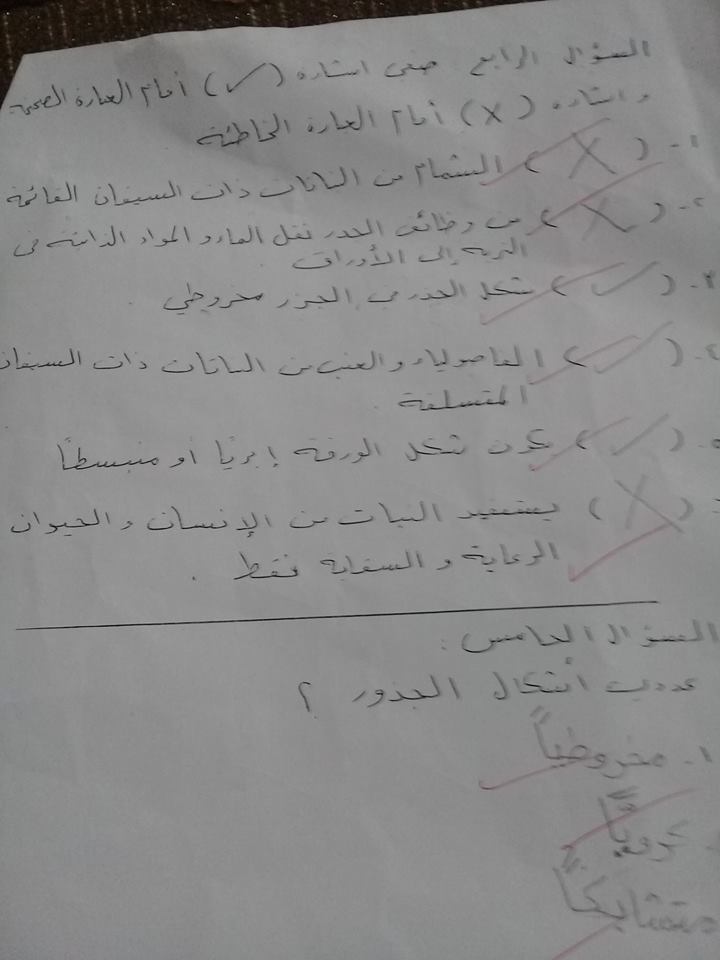 السؤال الرابع ضعي اشارة (✓) أمام العبارة الصحيحة
واشارة (X) أمام العبارة الخاطئة
١- (X) الشمام من النباتات ذات السيقان القائمة
٢- (X) من وظائف الجذر نقل الماء والمواد الذائبة في
التربة إلى الأوراق
٣- (✓) شكل الجذر في الجزر مخروطي
٤- (✓) الفاصولياء والعنب من النباتات ذات السيقان
المتسلقة .
٥- (✓) يكون شكل الورقة إبريًا أو منبسطًا
(X) يستفيد النبات من الإنسان والحيوان
الرعاية و السقاية فقط .
السؤال الخامس :
عددي أشكال الجذور ؟
١- مخروطياً
كروياً
متشابكاً